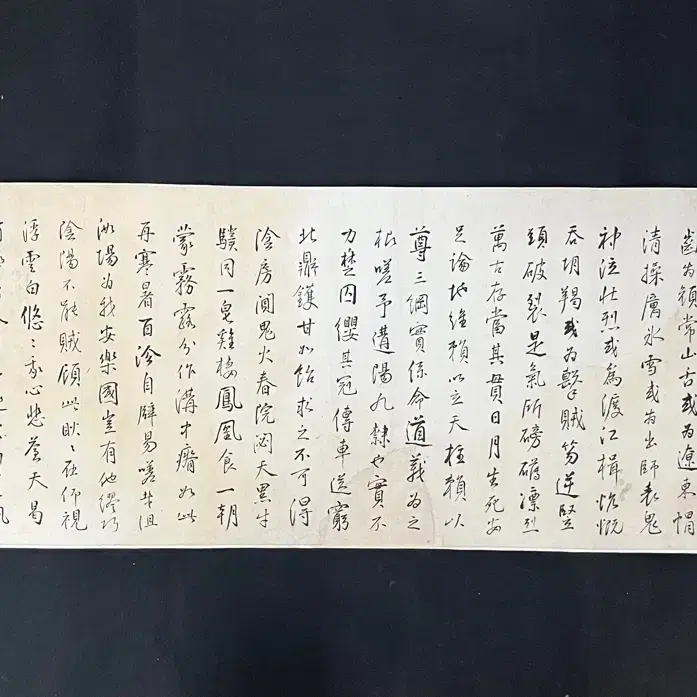 齒為顏常山舌或為遼東帽
清操厲冰雪或為出師表鬼
神泣壯烈或為渡江楫慷慨
吞胡羯或為擊賊笏逆豎
頭破裂是氣所磅礴凜烈
萬古存當其貫日月生死安
足論地維賴以立天柱賴以
尊三綱實係命道義為之
根嗟予遘陽九隸也實不
力楚囚纓其冠傳車送窮
北鼎鑊甘如飴求之不可得
陰房闃鬼火春院閟天黑牛
驥同一皂雞棲鳳凰食一朝
蒙霧露分作溝中瘠如此
再寒暑百沴自辟易嗟哉沮
洳場為我安樂國豈有他繆巧
陰陽不能賊顧此耿々在仰視
浮雲白悠々我心悲蒼天曷